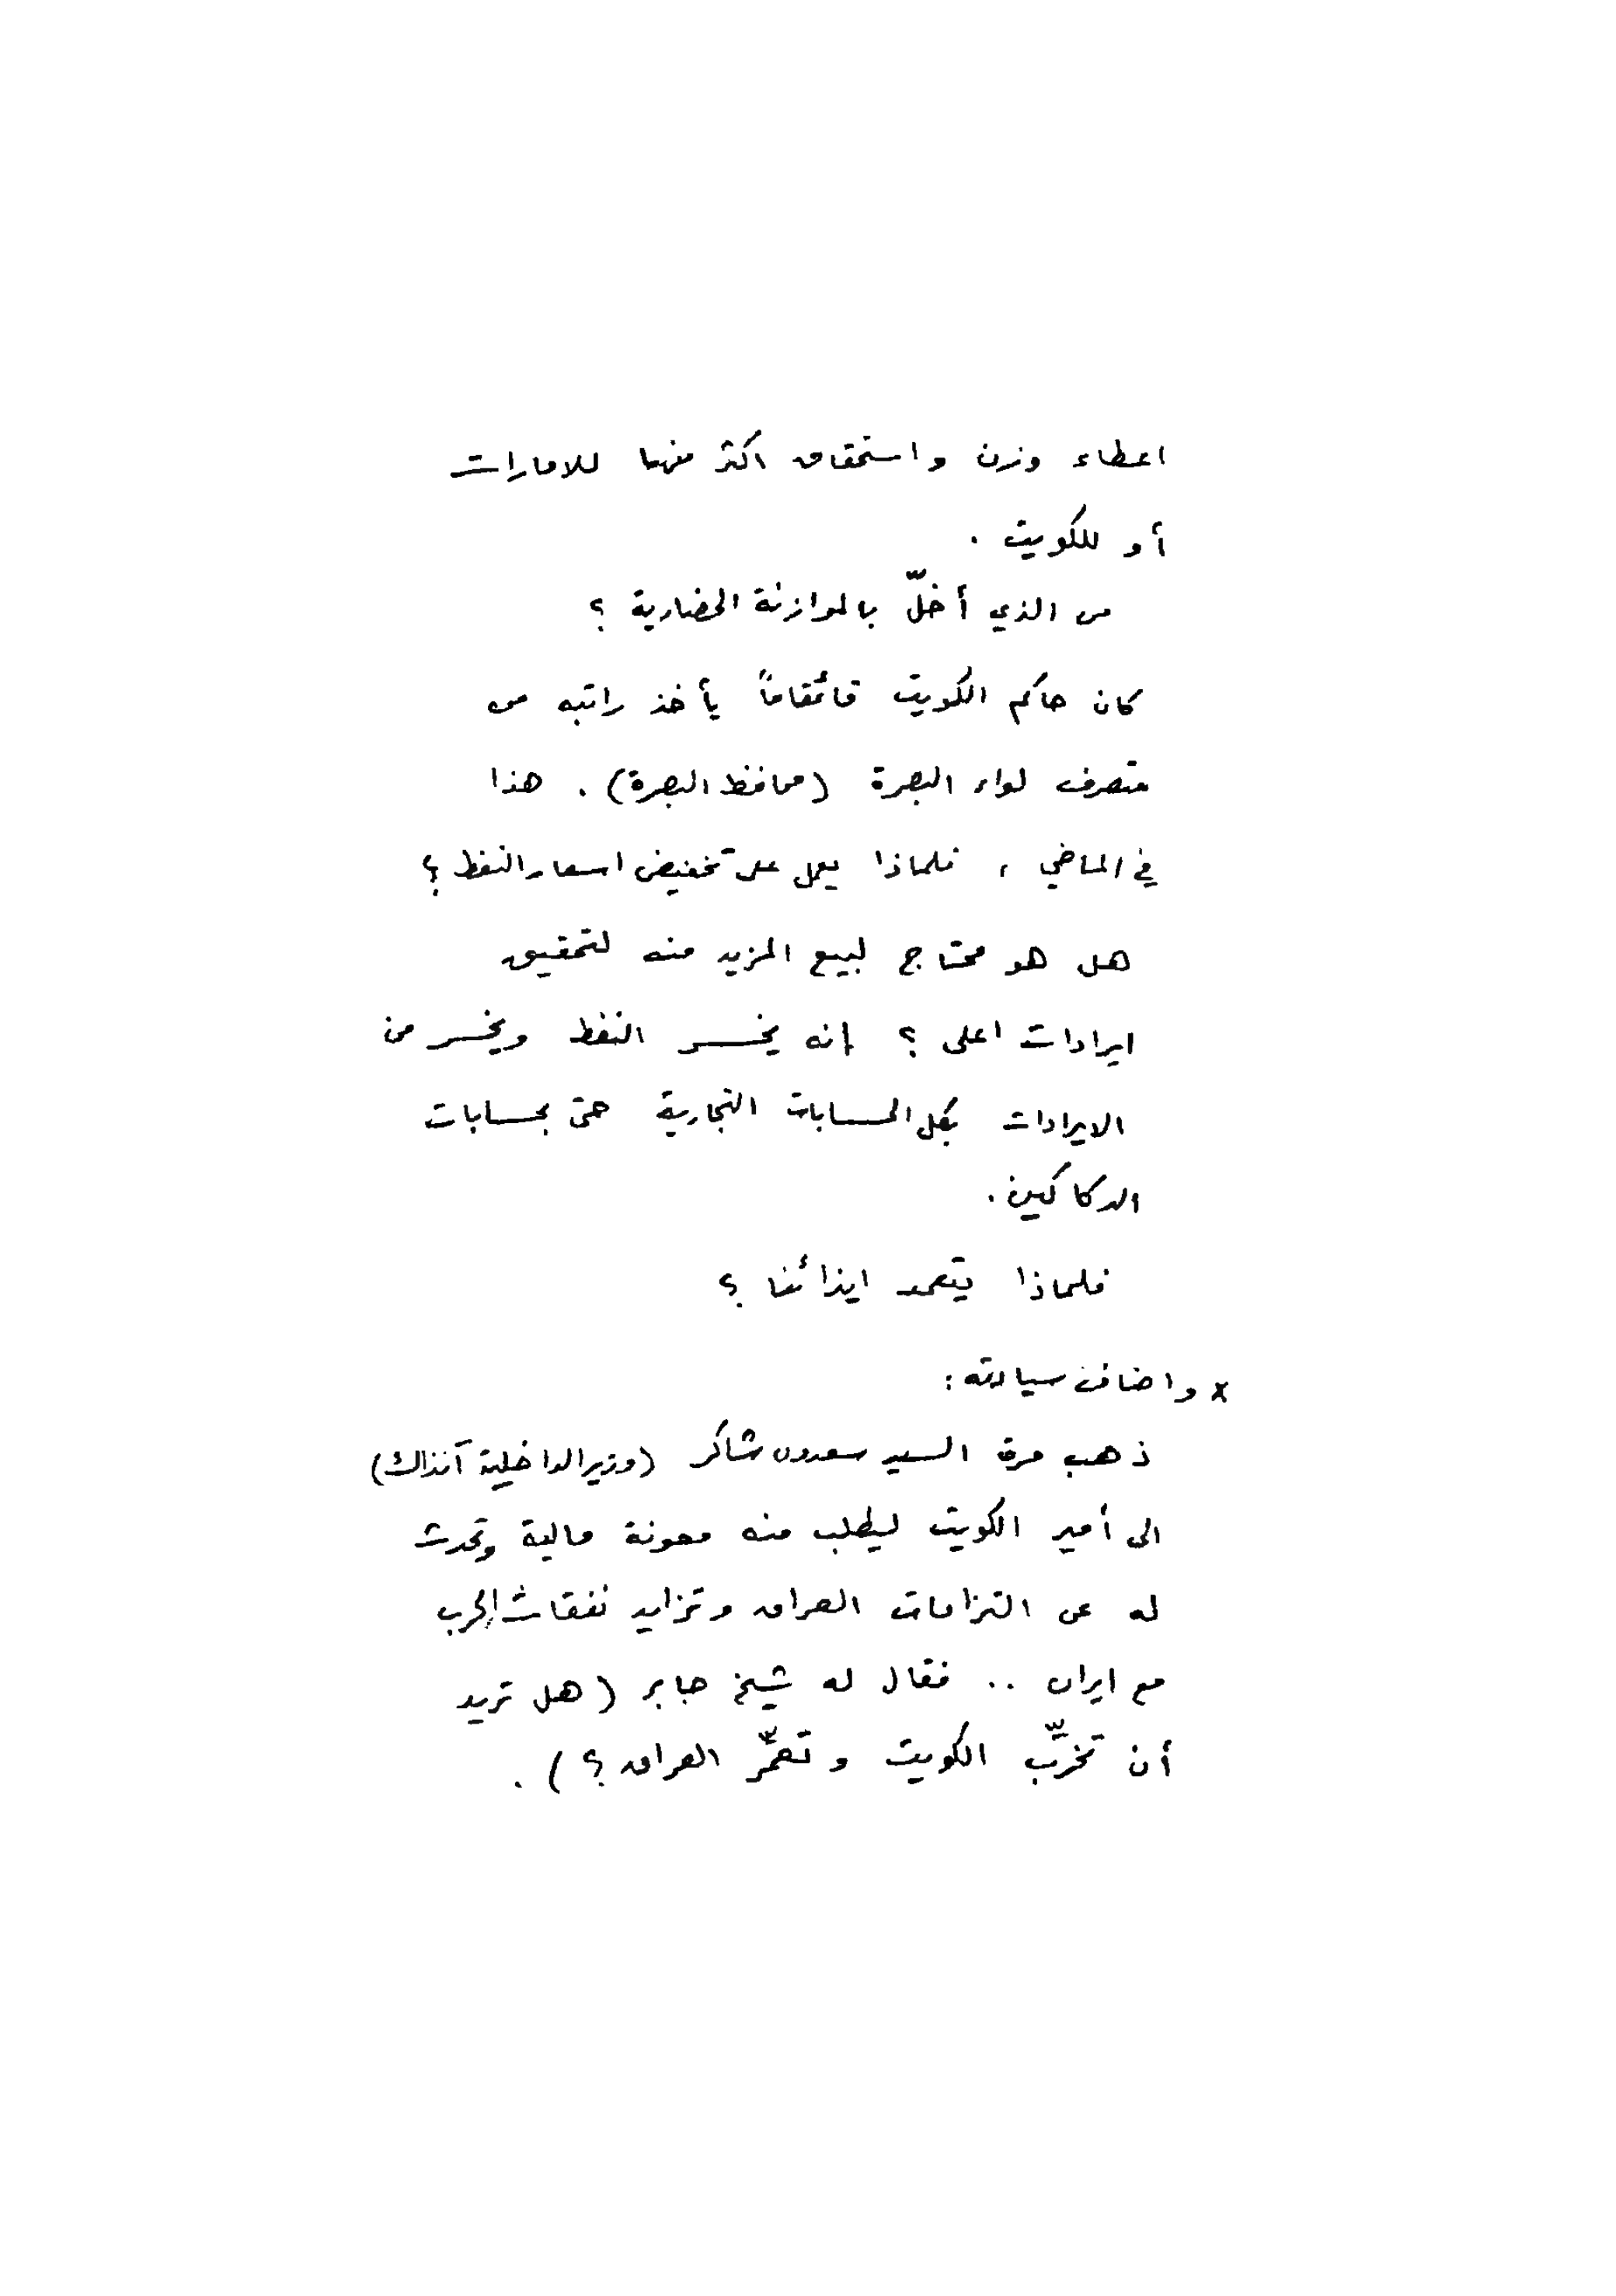 اعطاء وزن واستحقاق اكثر منهما للامارات
أو للكويت .
من الذي أخلّ بالموازنة الحضارية ؟
كان حاكم الكويت قائمقاماً يأخذ راتبه من
متصرف لواء البصرة (محافظ البصرة) . هذا
في الماضي ، فلماذا يعمل على تخفيض اسعار النفط ؟
هل هو محتاج لبيع المزيد منه لتحقيق
ايرادات اعلى ؟ إنه يخسر النفط ويخسر من
الايرادات بكل الحسابات التجارية حتى بحسابات
الدكاكين .
فلماذا يتعمد ايذائنا ؟
× واضاف سيادته :
ذهب مرة السيد سعدون شاكر (وزير الداخلية آنذاك)
الى أمير الكويت ليطلب منه معونة مالية وتحدث
له عن التزامات العراق وتزايد نفقات الحرب
مع ايران .. فقال له شيخ جابر ( هل تريد
أن تخرّب الكويت وتعمّر العراق ؟ ) .